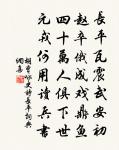 長平瓦震武安初
趙卒俄成戲鼎魚
四十萬人俱下世
元戎何用讀兵書
胡曾詠史詩長平詞典
網高